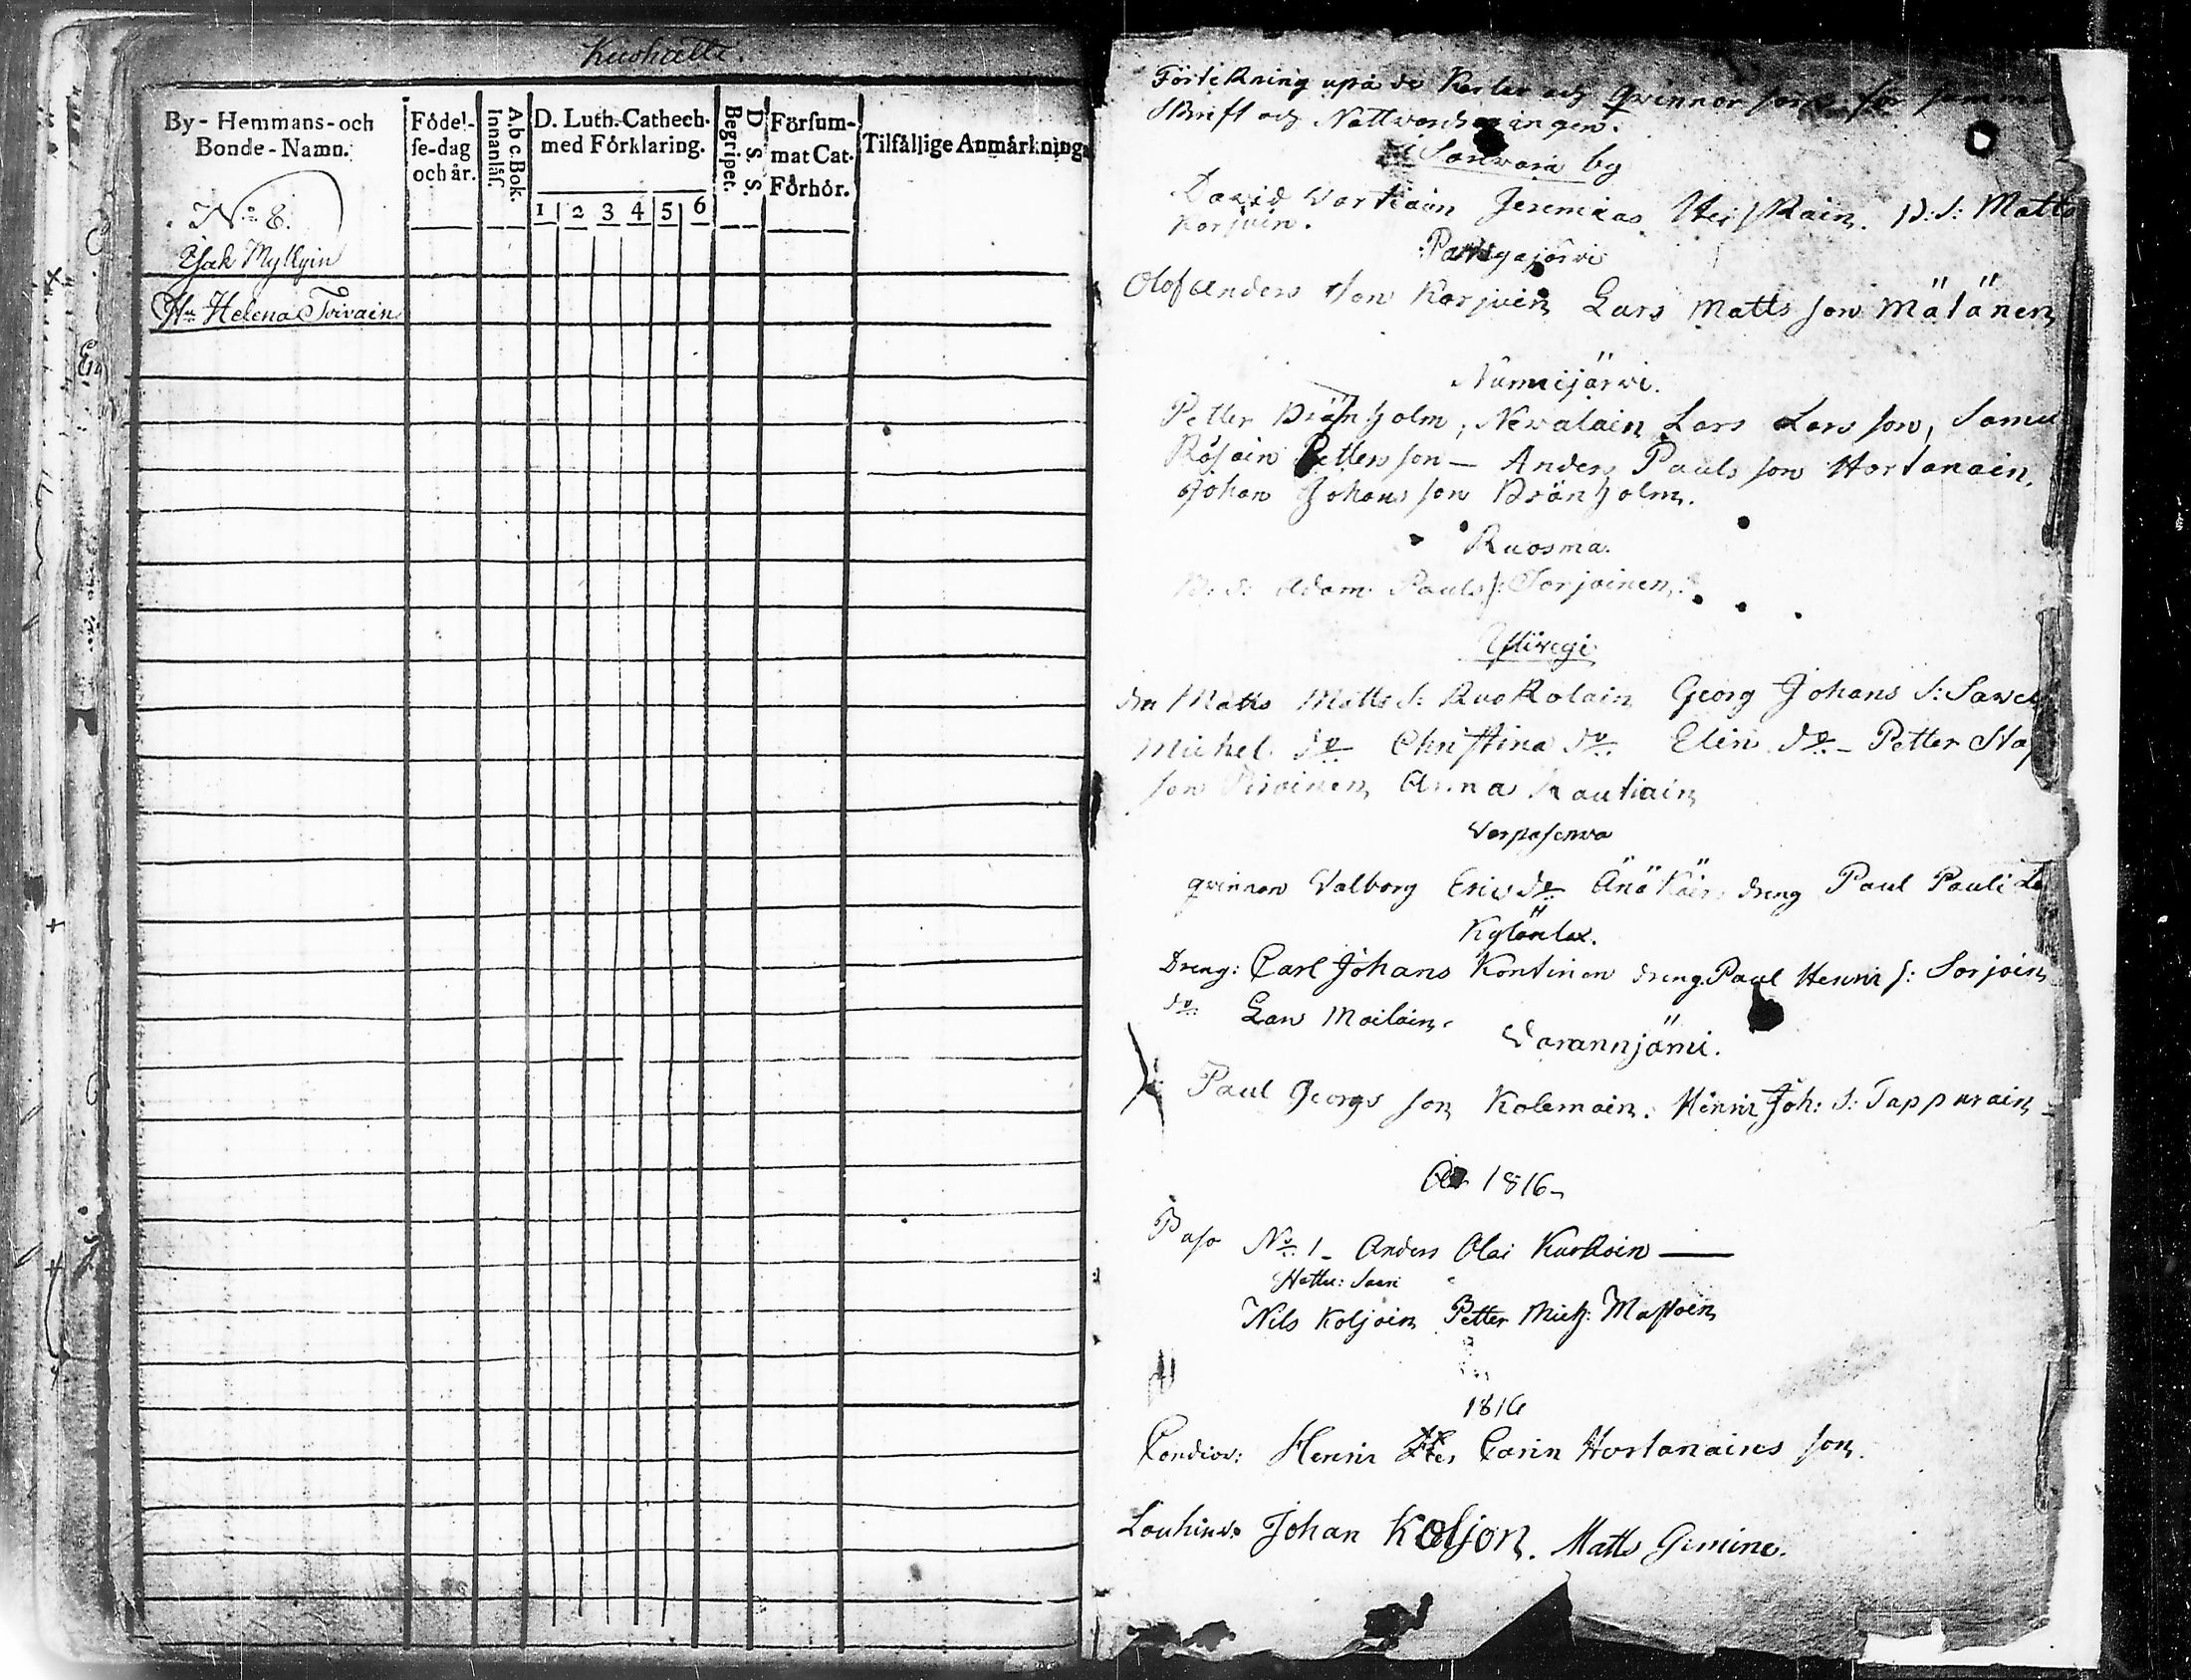 Kuohatti.
By-Hemmans-och
Bonde-Namn.
Födel-
se-dag
och år.
A.b.c.Bok.
Innanläs.
D. Luth. Cathech.
med Förklaring.
1 2 3 4 5 6
D. S. S.
Begripet.
Försum-
mat Cat.
Förhör.
Tilfällige Anmärkning
No. 8.
Isak Myllyin
Hu Helena Toivain
Förtekning upå de Karlar och qvinnor som för summa
Skrift och Nattvardsgången.
by
David Vartiain Jeremias Heiskain. D: S: Matts
Korjuin.
Olof Anders Son Korjuin Lars Matts son Mätänen
Nurmijärvi.
Petter Brönholm, Nevalain Lars Lars son, Samu
Röjsain Petters son — Anders Pauls son Hortanain,
Johan Johans son Brönholm.
Ruosma.
D. S: Adam Pauls s: Sorjoinen,
Ylivegi
Matts Matts S: Ruokolain Georg Johans S: Save
Michel do Christina do Elin do - Petter Sta
son Anna Rautiain
Varpasenva
qvinnan Valborg Erics do dreng Paul Pauli
Kylänlax.
Dreng: Carl Johans Kontinen dreng Paul Henric s: Sorjoin
do Lars Moilain.
Paul Georgs son Kolemain. Henric Joh: S: Tappurain
År 1816
No. 1 - Anders Olai Kurkoin —
Nils Koljoin Petter Mich: Mastoin
1816
Henric Carin Hortanains son.
Johan Koljon. Matts